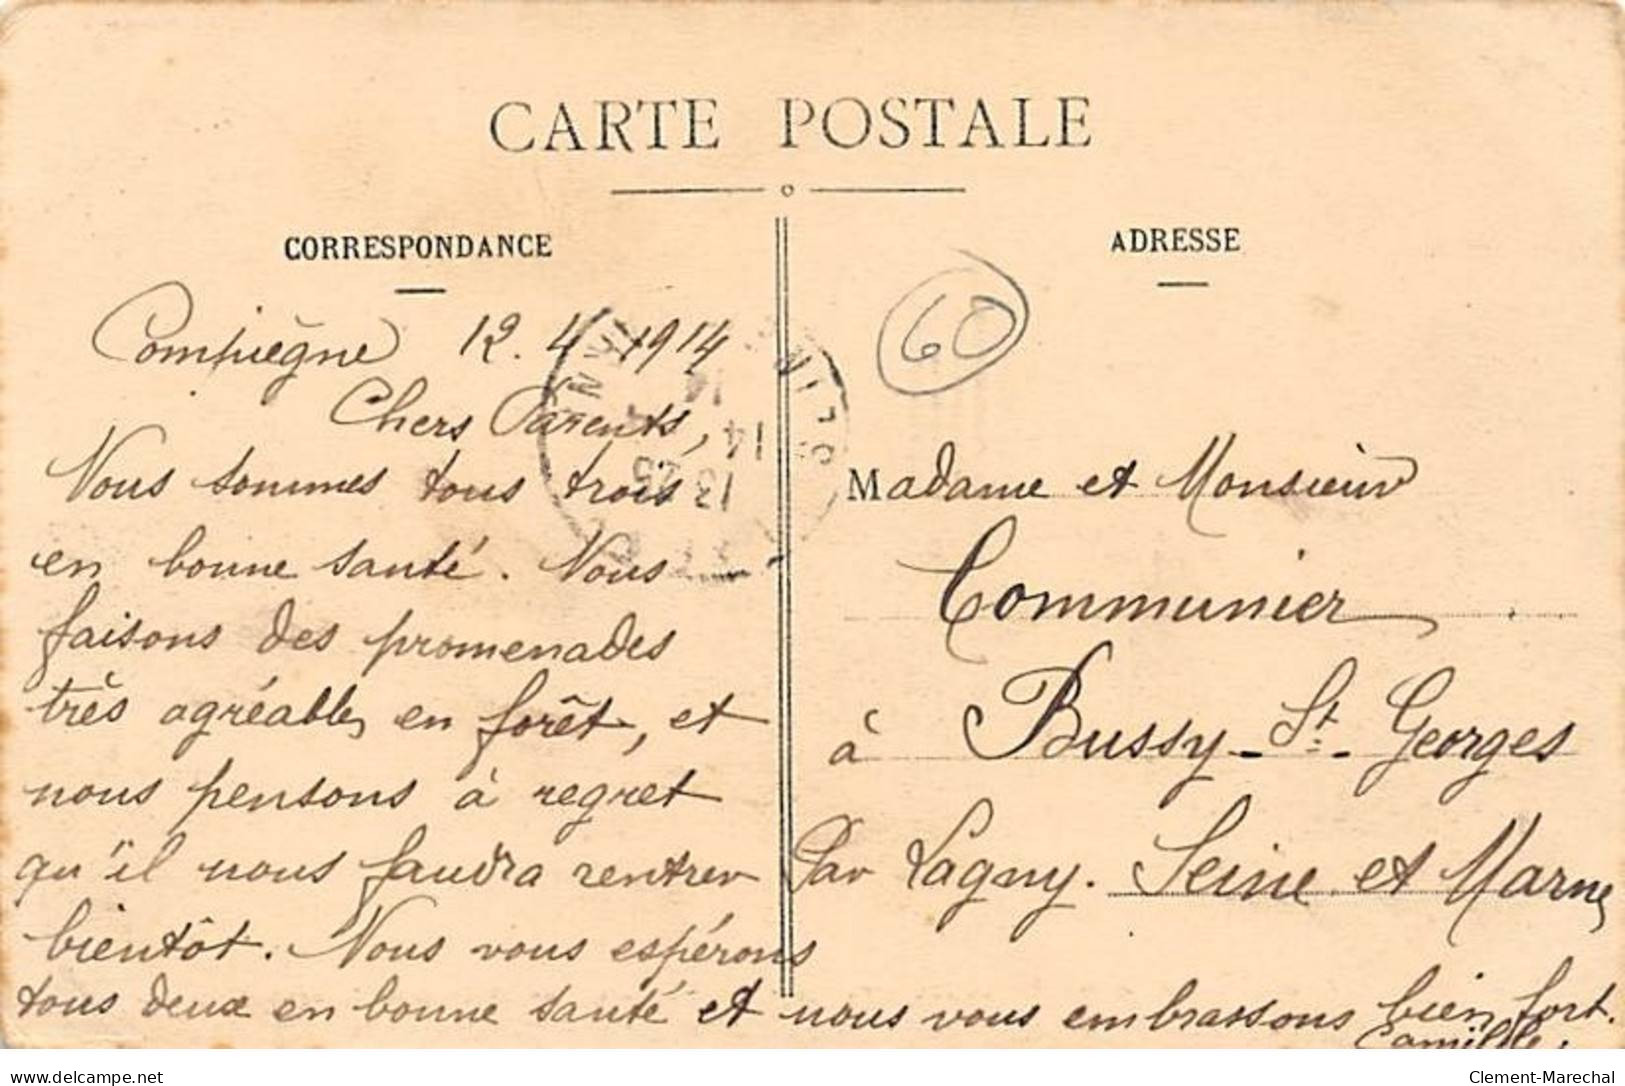 CARTE POSTALE
CORRESPONDANCE
Compiègne 12.4.1914
Chers Parents,
Nous sommes tous trois
en bonne santé. Nous
faisons des promenades
très agréables en forêt, et
nous pensons à regret
qu'il nous faudra rentrer
bientôt. Nous vous espérons
tous deux en bonne santé et nous vous embrassons bien fort.
Camille.
ADRESSE
60
Madame et Monsieur
Communier
à Bussy-St-Georges
Par Lagny. Seine et Marne
13 25
14
14
delcampe.net
Clement-Marechal